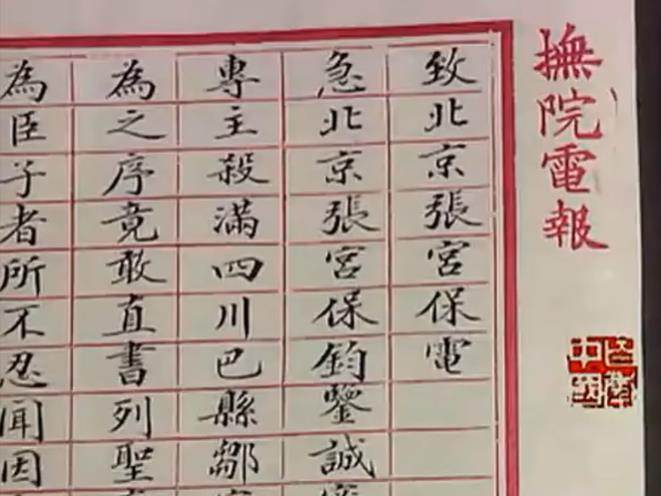 撫院電報
致北京張宮保電
急北京張宮保鈞鑒誠
專主殺滿四川巴縣鄒
為之序竟敢直書列聖
為臣子者所不忍聞因